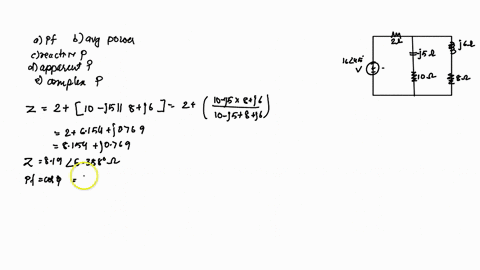 a) Pf b) avg power
c) reactive P
d) apparent P
e) complex P
Z = 2 + [10 - j5 || 8 + j6] = 2 + (10-j5 x 8+j6 / 10-j5+8+j6)
= 2 + 6.154 + j0.769
= 8.154 + j0.769
Z = 8.19 ∠5.388° Ω
Pf = cos φ =
2Ω
j5Ω
j6Ω
V
10Ω
8Ω